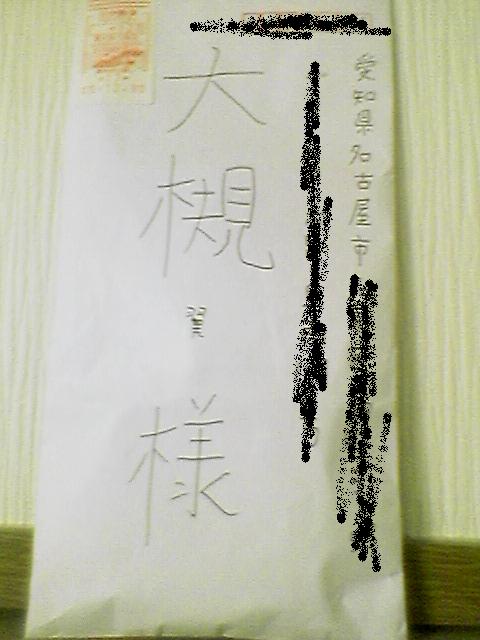 愛知県名古屋市
大槻翼様